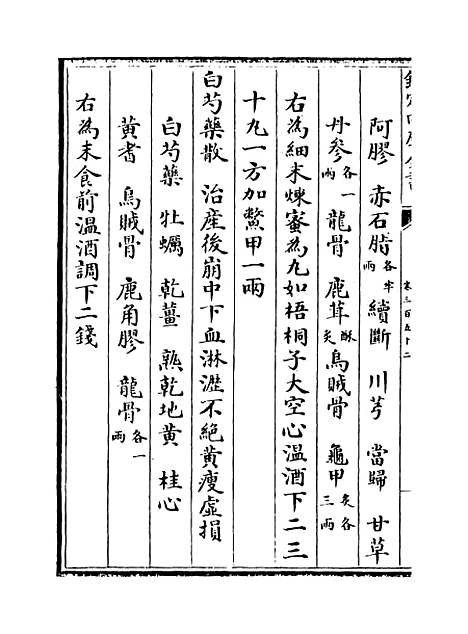 欽定四庫全書 卷三百五十二
阿膠 赤石脂各半兩 續斷 川芎 當歸 甘草
丹參各一兩 龍骨 鹿茸酥炙 烏賊骨 龜甲炙各三兩
右為細末煉蜜為丸如梧桐子大空心温酒下二三
十丸一方加鱉甲一兩
白芍藥散 治産後崩中下血淋瀝不絶黄瘦虛損
白芍藥 牡蠣 乾薑 熟乾地黄 桂心
黄耆 烏賊骨 鹿角膠 龍骨各一兩
右為末食前温酒調下二錢